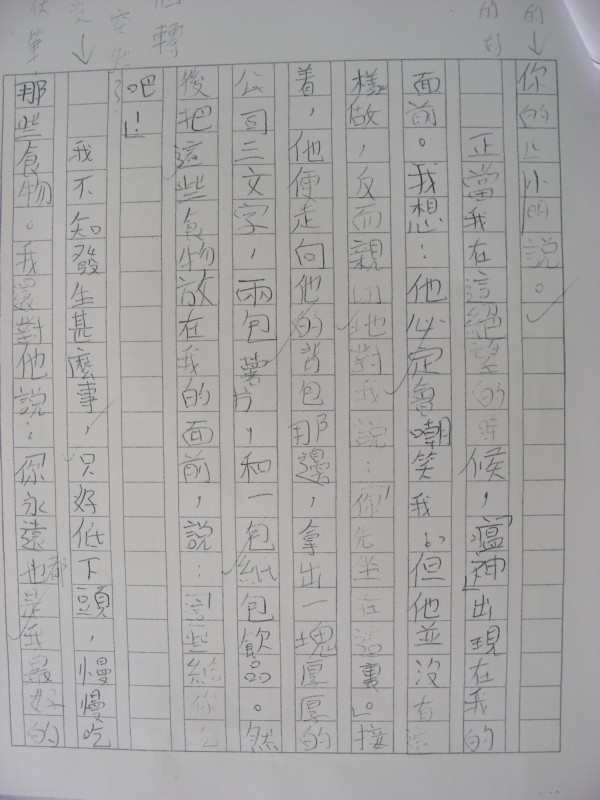 你的上小明說。
正當我在這絕望的時候，「瘟神」出現在我的
面前。我想：他必定會嘲笑我。但他並沒有這
樣做，反而親切地對我說：「你先坐在這裏。」接
着，他便走向他的背包那邊，拿出一塊厚厚的
公司三文字，兩包薯片，和一包紙包飲品。然
後把這些食物放在我的面前，說：「這些給你
吧！」
我不知發生甚麼事，只好低下頭，慢慢吃
那些食物。我還對他說：你永遠也都是我最好的